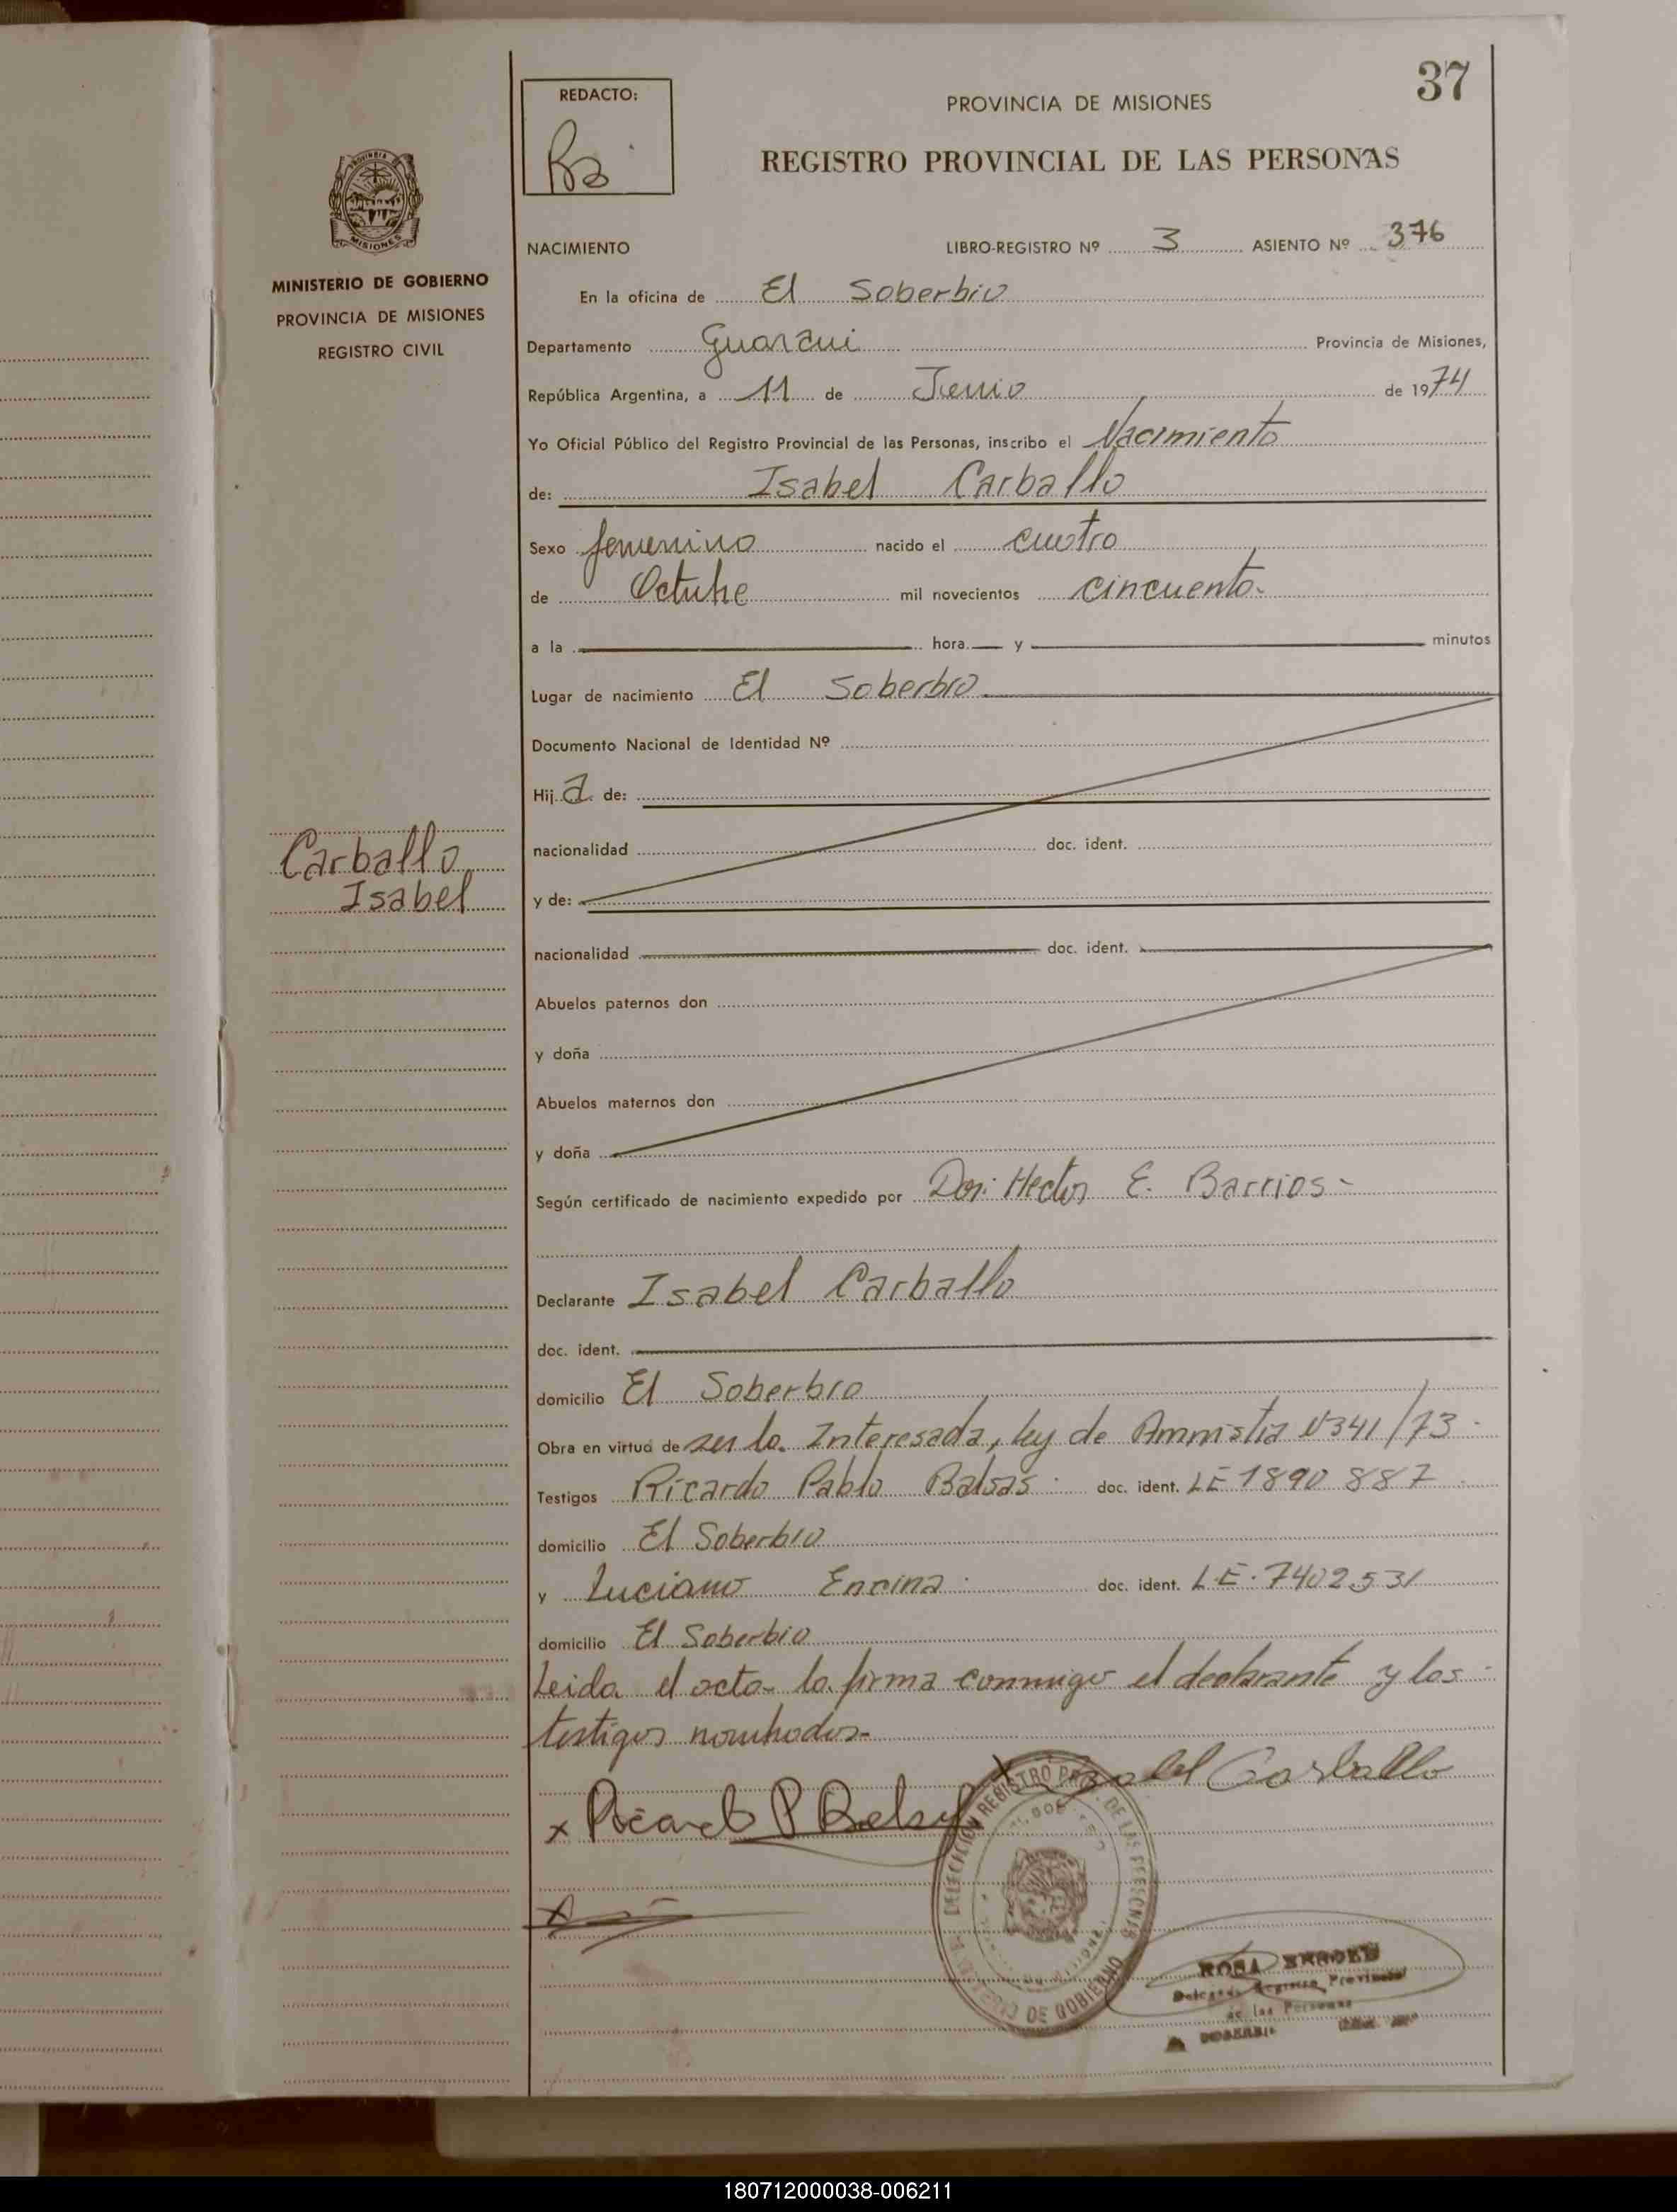 37
REDACTO:
PROVINCIA DE MISIONES
REGISTRO PROVINCIAL DE LAS PERSONAS
PROVINCIA DE
MISIONES
MINISTERIO DE GOBIERNO
PROVINCIA DE MISIONES
REGISTRO CIVIL
NACIMIENTO LIBRO-REGISTRO Nº 3 ASIENTO Nº 376
En la oficina de El Soberbio
Departamento Guarani Provincia de Misiones,
República Argentina, a 11 de Junio de 1974
Yo Oficial Público del Registro Provincial de las Personas, inscribo el Nacimiento
de: Isabel Carballo
Sexo femenino nacido el cuatro
de Octubre mil novecientos cincuenta-
a la hora y minutos
Lugar de nacimiento El Soberbio
Documento Nacional de Identidad Nº
Hija de:
nacionalidad doc. ident.
y de:
nacionalidad doc. ident.
Carballo
Isabel
Abuelos paternos don
y doña
Abuelos maternos don
y doña
Según certificado de nacimiento expedido por Don: Hector E. Barrios-
Declarante Isabel Carballo
doc. ident.
domicilio El Soberbio
Obra en virtud de ser la Interesada, ley de Amnistia Nº341/73-
Testigos Ricardo Pablo Balsas doc. ident. LE 1890887
domicilio El Soberbio
y Luciano Encina doc. ident. LE. 7402531
domicilio El Soberbio
Leida el acta- la firma conmigo el declarante y los
testigos nombrados-
Isabel Carballo
x Ricardo P
DELEGACION REGISTRO PROV. DE LAS PERSONAS
DE GOBIERNO
ROSA
Delegada Registro Provincial
de las Personas
180712000038-006211